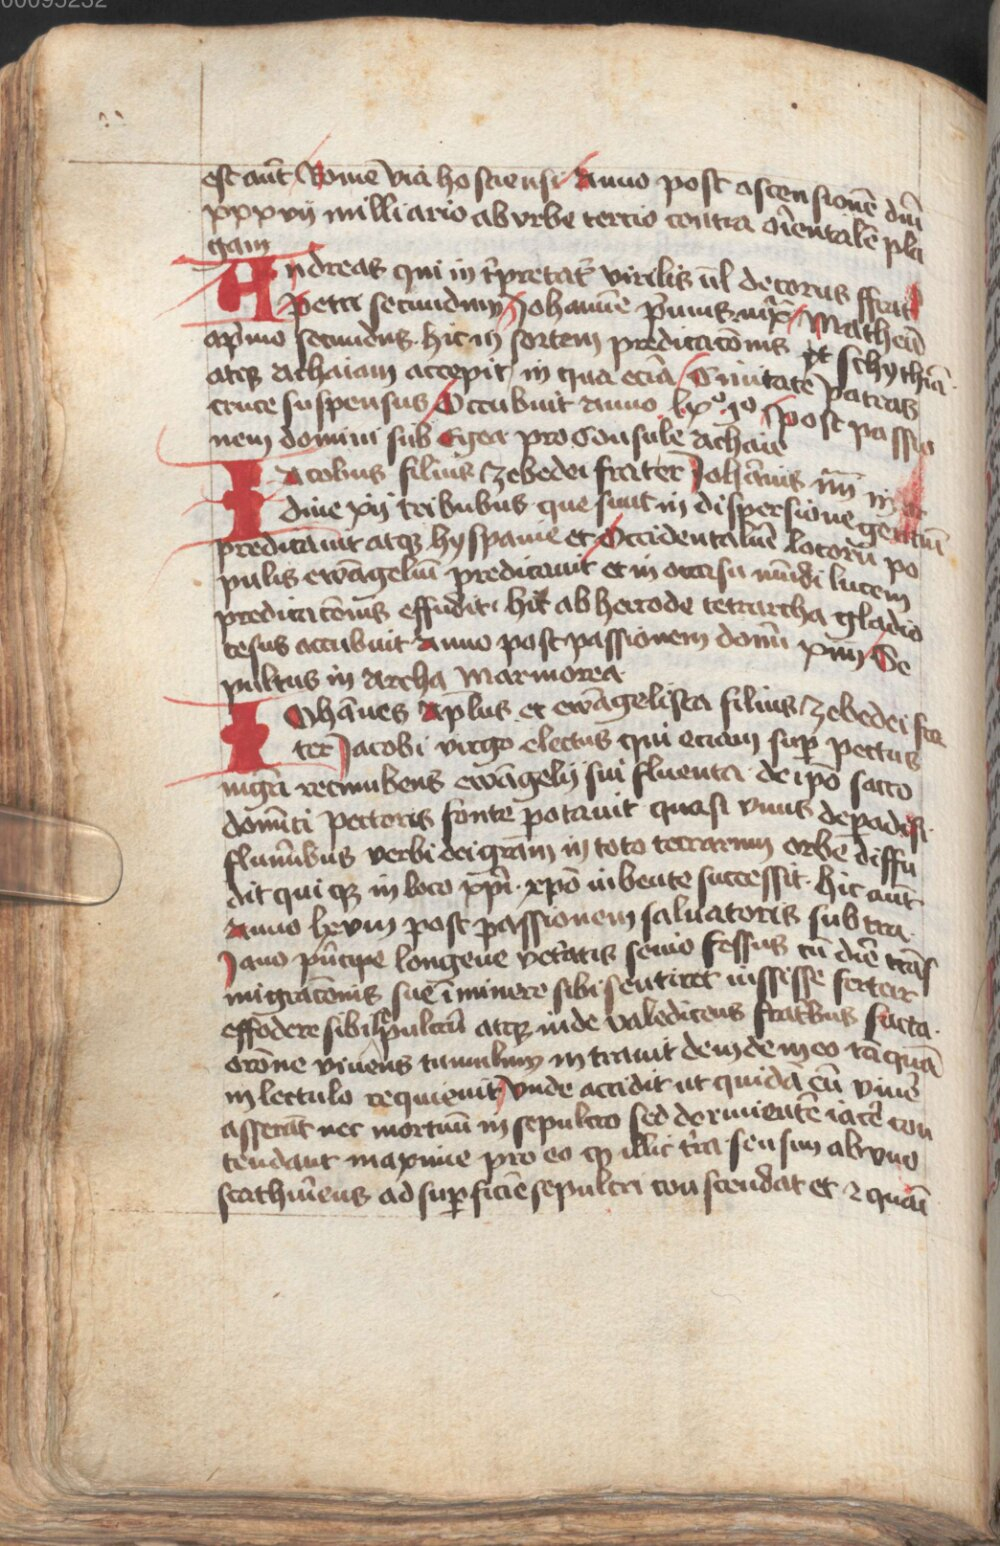 00095252
est aūt Rome via hostiensi Anno post ascensionē dnī
xxxvij milliario ab vrbe tercio contra oīentalē pla
gam
Andreas qui intˀpretatˀ virilis ūl decorus ffrater
Petri secundum Johanne pˀmus
apˀmo secundus. hic in sortem predicacōnis et schythiā
atqꝫ achaiam accepit in qua eciā Ciuitate patras
cruce suspensus Occubuit anno post passio
nem domini sub Egea proconsule achaie
Iacobus filius zebedei frater Johānis
dine xij tribubus que sunt in dispersione gentiū
predicauit atqꝫ hyspanie et Occidentaliū locorū po
pulis ewāgeliū predicauit et in occasu mūdi lucem
predicacōnis effudit. hic ab herode tetrarcha gladio
cesus occubuit anno post passionem domī xiiij Se
pultus in archa marmorea
Iohānes Apl̄us et ewāgelista filius zebedei fra
ter Jacobi virgo electus qui eciam sup̄ pectus
mgr̄i recumbens ewāgelij sui fluenta de ip̄o sacro
domīici pectoris fonte potauit quasi vnus de padisi
flumībus verbi dei grām in toto terrarum orbe diffu
dit qui qꝫ in loco xp̄i. xp̄o iubente successit. hic aūt
anno lxvij post passionem saluatoris sub tra
Jano pˀncipe longeue vetˀatis senio fessus cū diē trās
migracōnis sue īminere sibi sentiret iussisse fertur
effodere sibi sepulcrū atqꝫ inde valedicens fratribus facta
orōne viuens tumulum intrauit deinde in eo tāquā
in lectulo requieuit Vnde accidit ut quidā eū viuē
asserāt nec mortuū in sepulcro sed dormientē iacē con
tendant maxime pro eo qꝫ illic tˀra sensim ab ymo
scathuriens ad sup̄ficiē sepulcri conscendat et